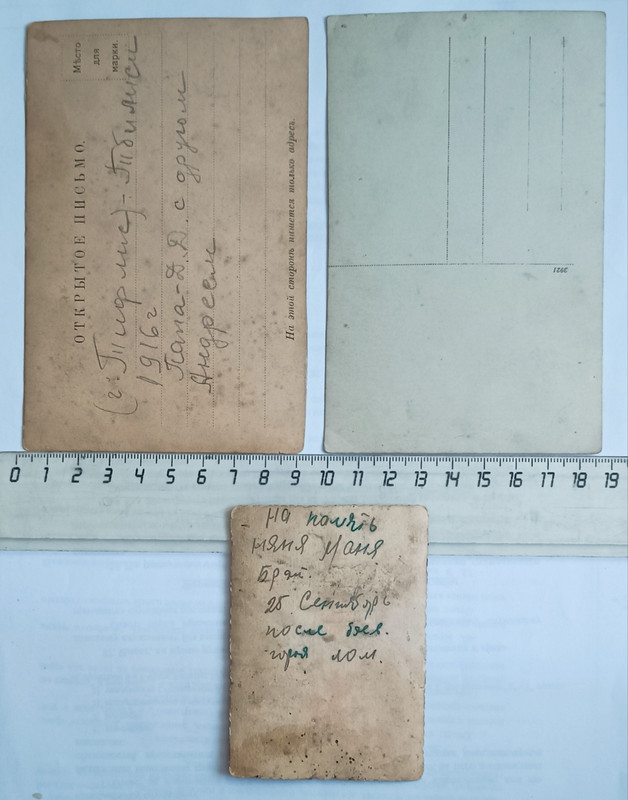 Мѣсто
для
марки.
ОТКРЫТОЕ ПИСЬМО.
(г. Тифлис) - Тбилиси
1916 г
Папа - Д. Д. с другом
Андреем
На этой сторонѣ пишется только адресъ.
3921
0 1 2 3 4 5 6 7 8 9 10 11 12 13 14 15 16 17 18 19
на помять
няня Маня
25 Сентибрь
после боя.
город лом.